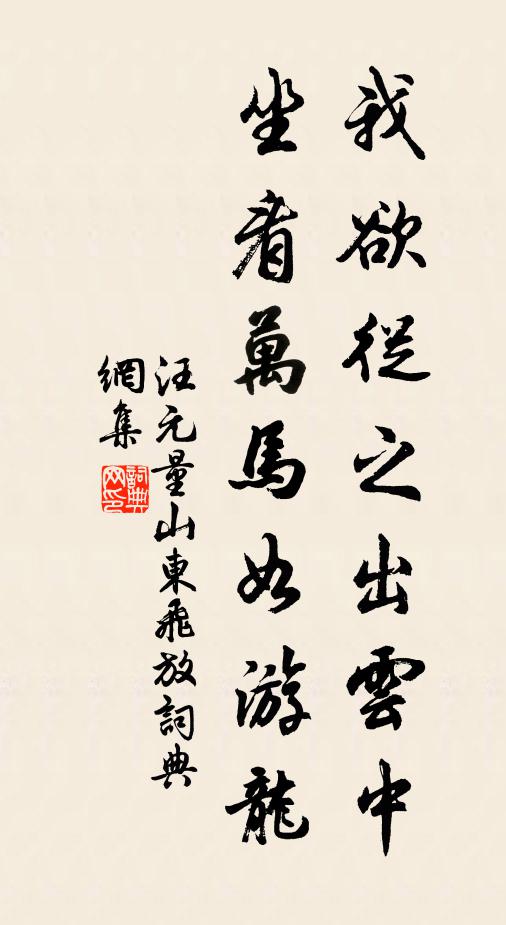 我欲從之出雲中
坐看萬馬如游龍
汪元量山東飛放詞典
網集
詞典網印